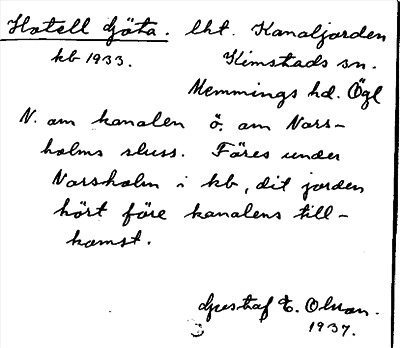 Hotell Göta. lht. Kanaljorden
kb 1933. Kimstads sn.
Memmings hd. Ögl
N. om kanalen ö. om Nors-
holms sluss. Föres under
Norsholm i kb, dit jorden
hört före kanalens till-
komst.
Gustaf E. Olsson.
1937.